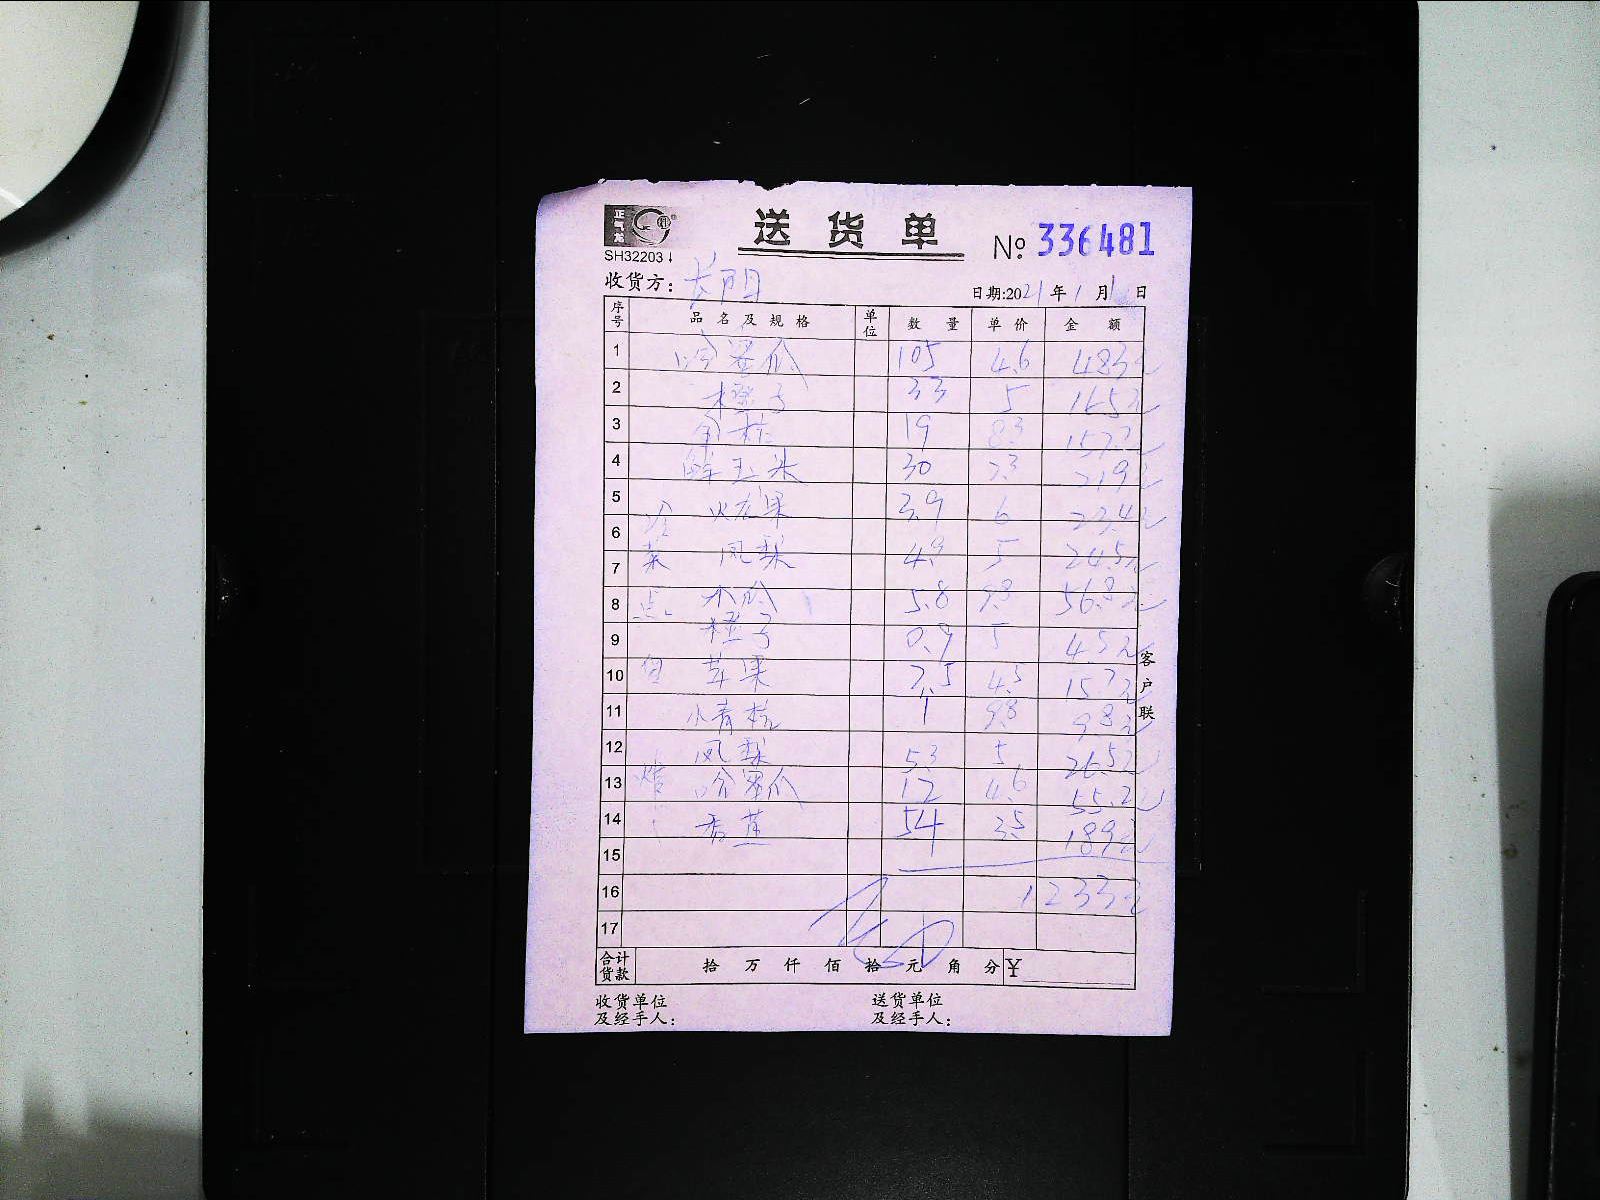 正气发
SH32203
送货单
№ 336481
收货方:
日期:2021年1月1日
序号 品名及规格 单位 数量 单价 金额
1 哈蜜瓜 105 4.6 483元
2 橙子 33 5 165元
3 金桔 19 8.3 157.7元
4 鲜玉米 30 7.3 219元
5 火龙果 3.9 6 23.4元
6 冷 凤梨 4.9 5 24.5元
7 菜 木瓜 5.8 9.8 56.8元
8 点 橙子 0.9 5 4.5元
9 苹果 3.5 4.5 15.7元
10 小青桔 1 9.8 9.8元
11 凤梨 5.3 5 26.5元
12 哈蜜瓜 12 4.6 55.2元
13 香蕉 54 3.5 189元
14
15 1233元
16
17
合计货款 拾 万 仟 佰 拾 元 角 分 ¥
收货单位及经手人:
送货单位及经手人:
客户联